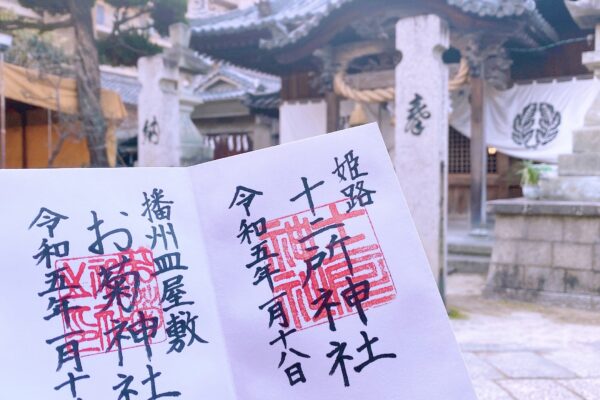 姫路
十二所神社
令和五年一月十八日
播州皿屋敷
お菊神社
令和五年一月十
奉
納